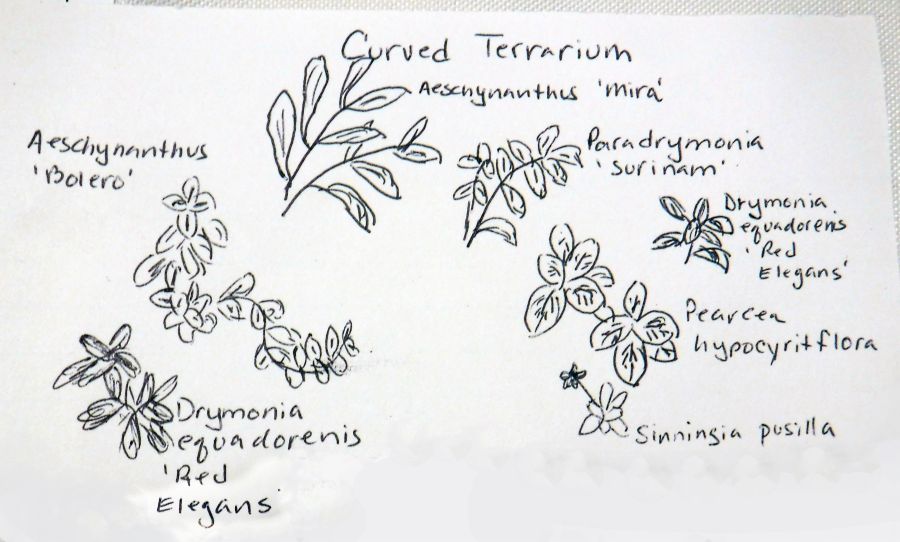 Curved Terrarium
Aeschynanthus 'Mira'
Aeschynanthus
'Bolero'
Paradrymonia
'Surinam'
Drymonia
equadorenis
'Red
Elegans'
Pearcea
hypocyritflora
Sinningia pusilla
Drymonia
equadorenis
'Red
Elegans'